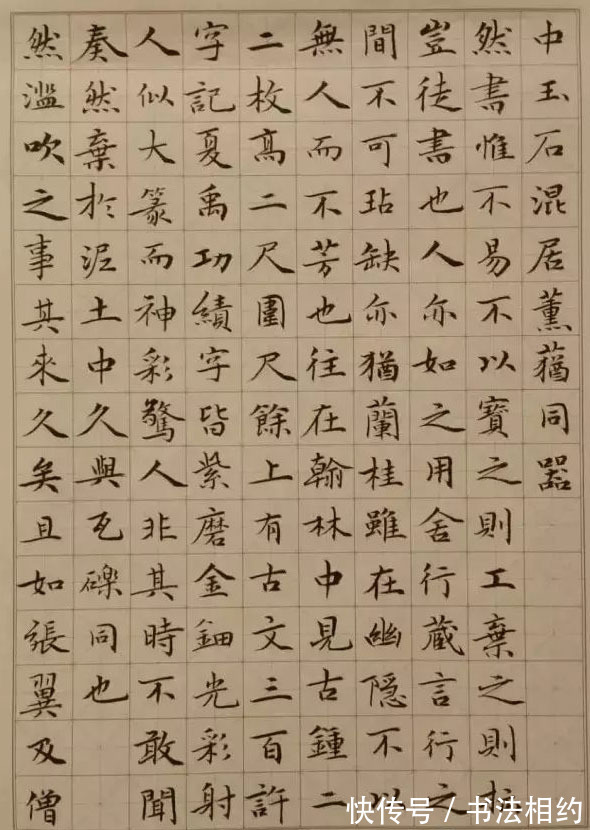 中玉石混居薰蕕同器
然書惟不易不以寶之則工棄之則拙
豈徒書也人亦如之用舍行蔵言行之
間不可玷缺亦猶蘭桂雖在幽隱不以
無人而不芳也往在翰林中見古鍾二
二枚高二尺圍尺餘上有古文三百許
字記夏禹功績字皆紫磨金鈿光彩射
人似大篆而神彩驚人非其時不敢聞
奏然棄於泥土中久與瓦礫同也
然濫吹之事其來久矣且如張翼及僧
快传号 / 书法相约